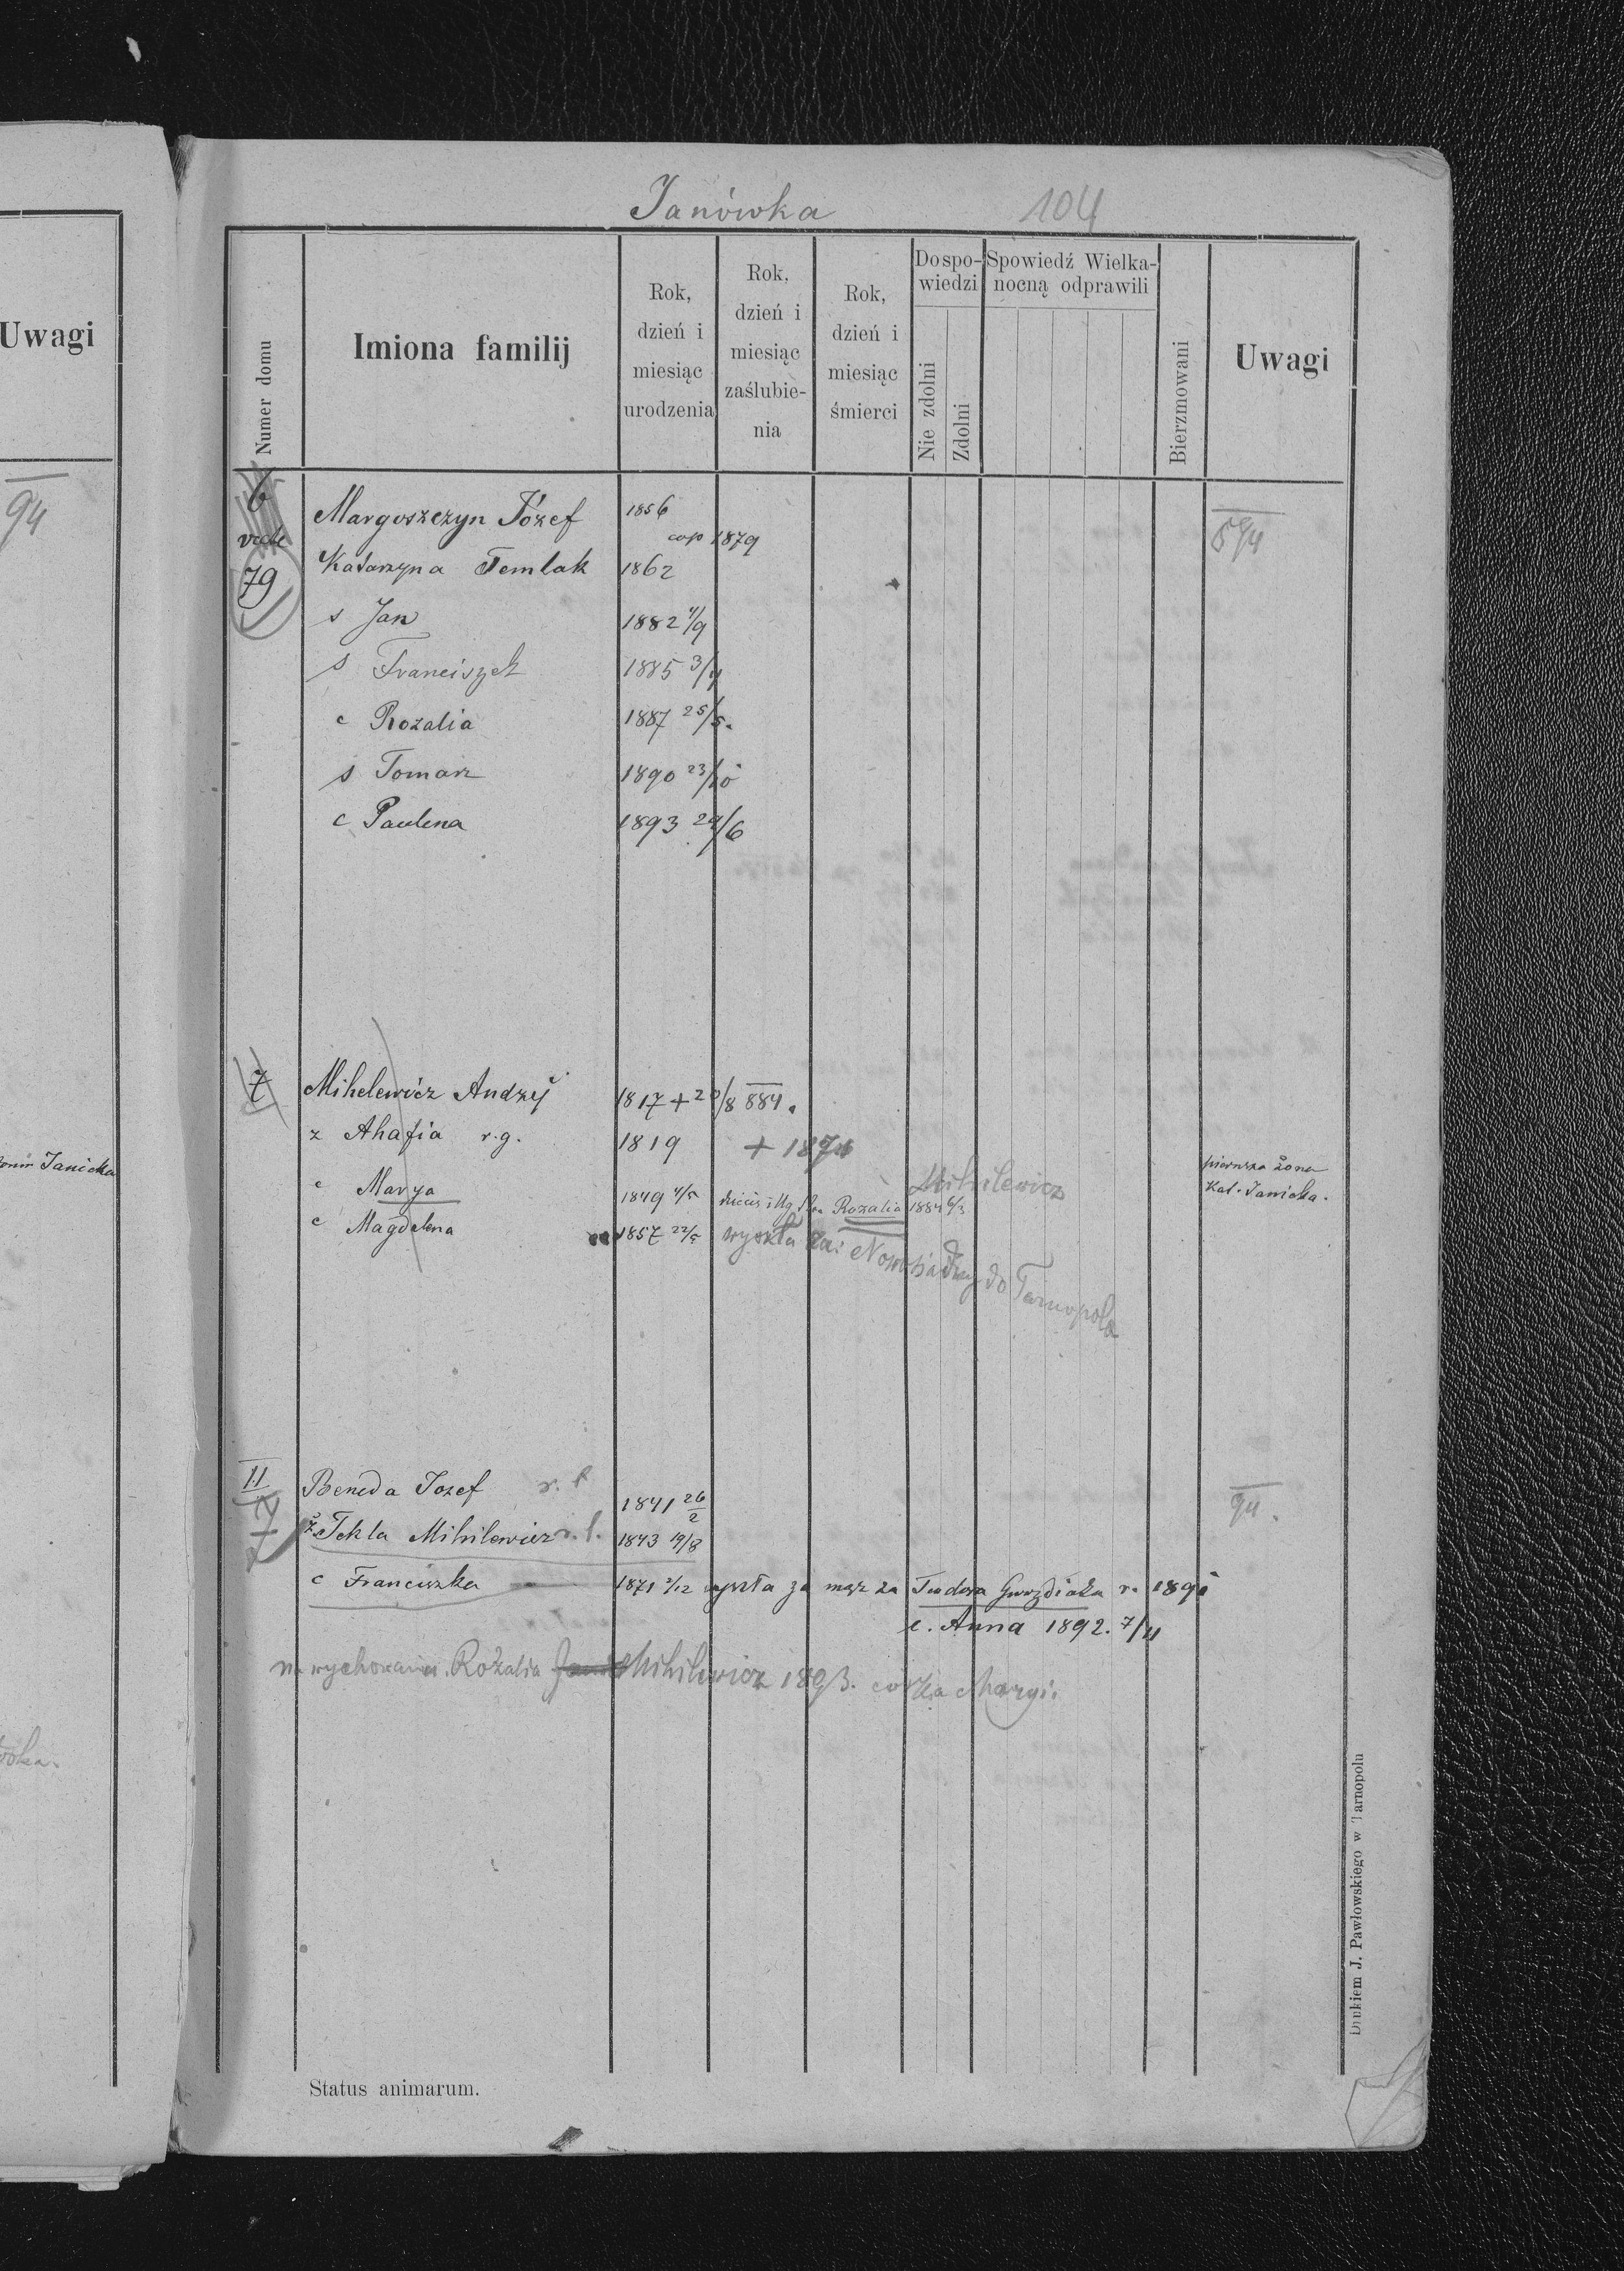 Janówka 104
Uwagi
94
Janicka
Numer domu
Imiona familij
Rok, dzień i miesiąc urodzenia
Rok, dzień i miesiąc zaślubienia
Rok, dzień i miesiąc śmierci
Do spowiedzi
Nie zdolni
Zdolni
Spowiedź Wielkanocną odprawili
Bierzmowani
Uwagi
6 Margoszczyn Józef 1856
vide cop 1879
79 Katarzyna Temlak 1862
s Jan 1882 4/9
s Franciszek 1885 3/4
c Rozalia 1887 25/5.
s Tomasz 1890 23/10
c Paulena 1893 29/6
7 Mihelewicz Andrzej 1817 + 20/8 884.
z Ahafia r.g. 1819 + 1874
Mihilewicz
pierwsza żona
c Marya 1849 4/5 Rozalia 1884 6/3 Kat. Janicka.
c Magdelena 1857 22/5 wyszła za: do Tarnopola
II Beneda Jozef r. l 1841 26/2 94.
7 ż. Tekla Mihilewicz r. l. 1843 19/8
c Franciszka 1871 2/12 wyszła za mąż za Teodora Gwozdiaka r. 1891
c. Anna 1892. 7/11
na wychowaniu Rozalia Mihilewicz 1893. córka Maryi.
Drukiem J. Pawłowskiego w Tarnopolu
Status animarum.